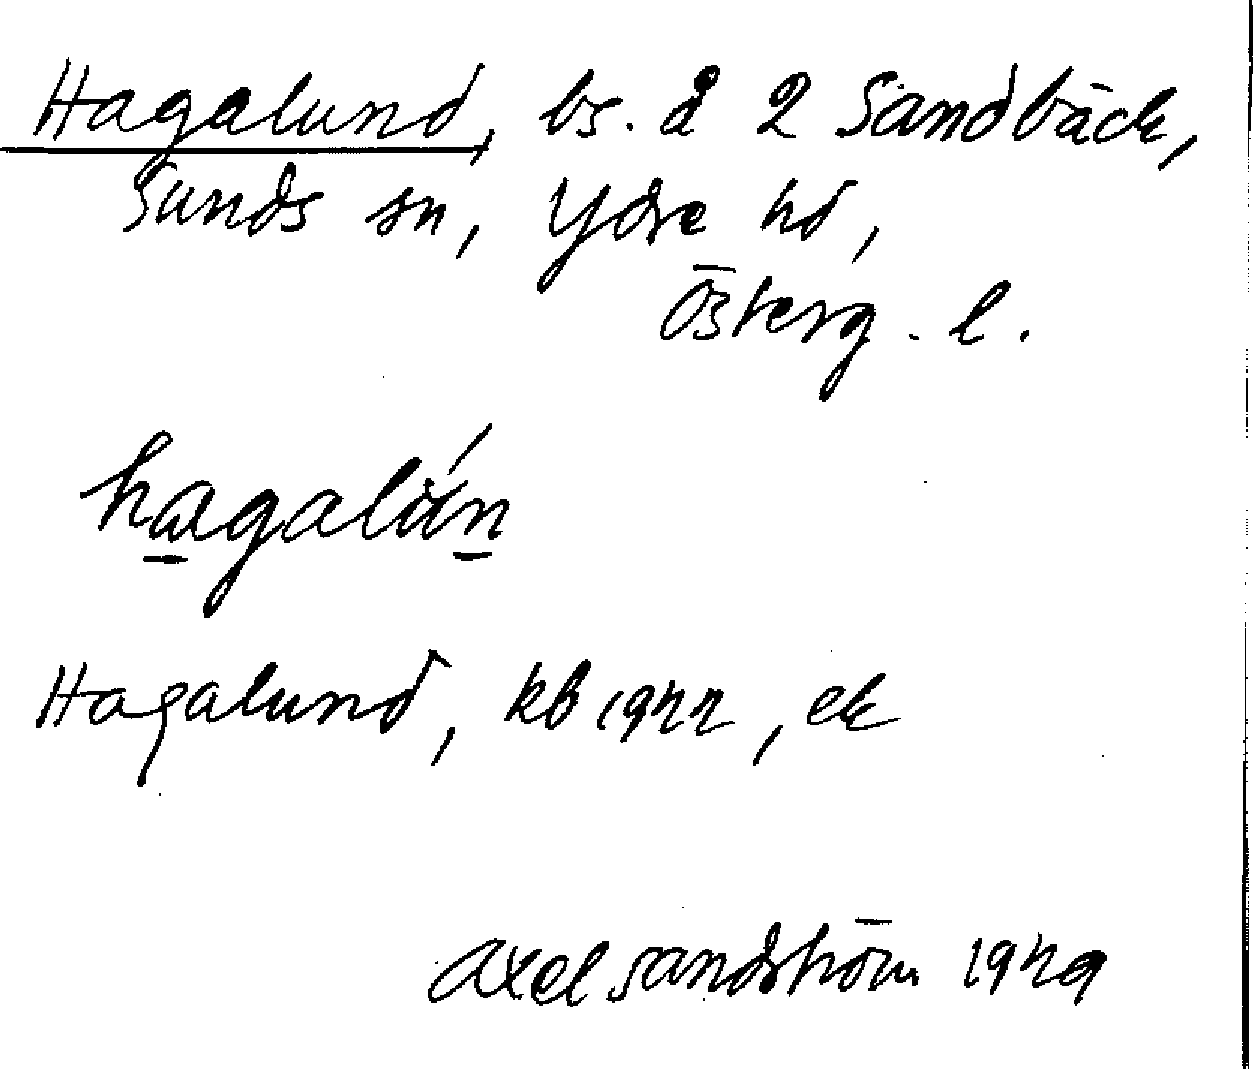 Hagalund, bs. å 2 Sandbäck,
Sunds sn, Ydre hd,
Österg. l.
hagalún
Hagalund, kb 1922, ek
Axel Sandström 1929